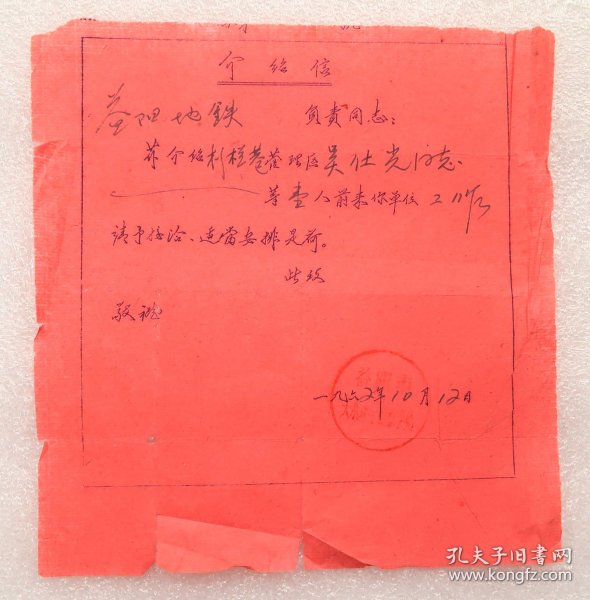 介绍信
益阳地铁 负责同志：
兹介绍利桂巷管理区吴仕光同志
等壹人前来你单位工作
请予接洽、适当安排是荷。
此致
敬礼
一九六二年10月12日
孔夫子旧书网
www.kongfz.com